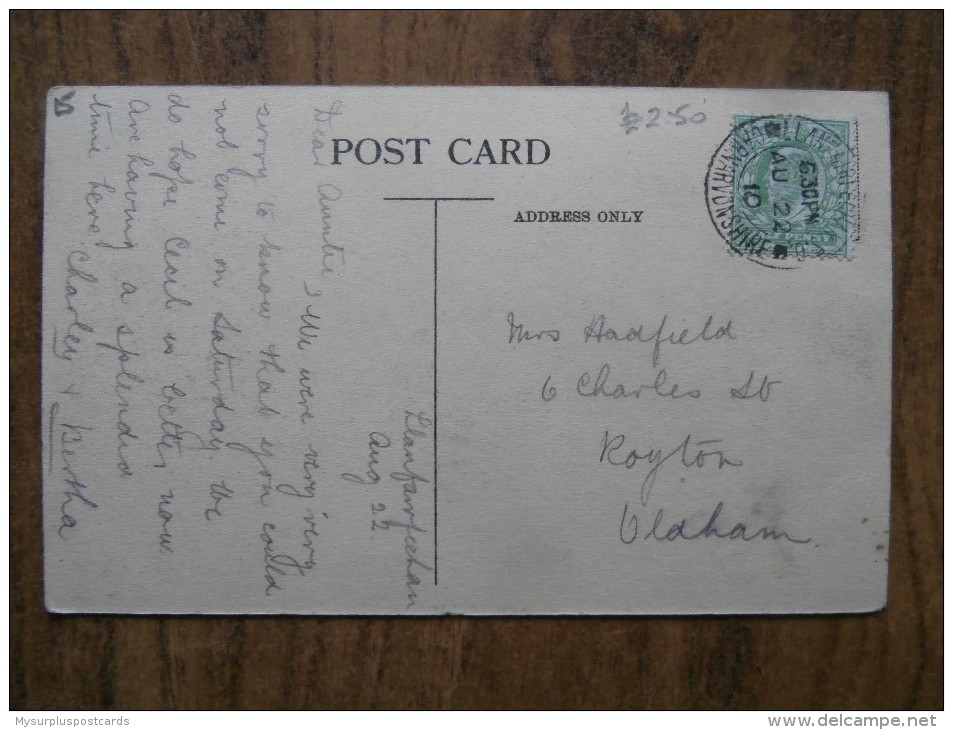 POST CARD
ADDRESS ONLY
2.50
6.30PM
AU 22
10
CARNARVONSHIRE
PENNY
Llanfairfechan
Aug 22.
Dear Auntie, We were very very
sorry to know that you could
not come on Saturday. We
do hope Cecil is better now.
Are having a splendid
time here. Charley & Bertha.
Mrs Hadfield
6 Charles St
Royton
Oldham.
Mysurpluspostcards
www.delcampe.net